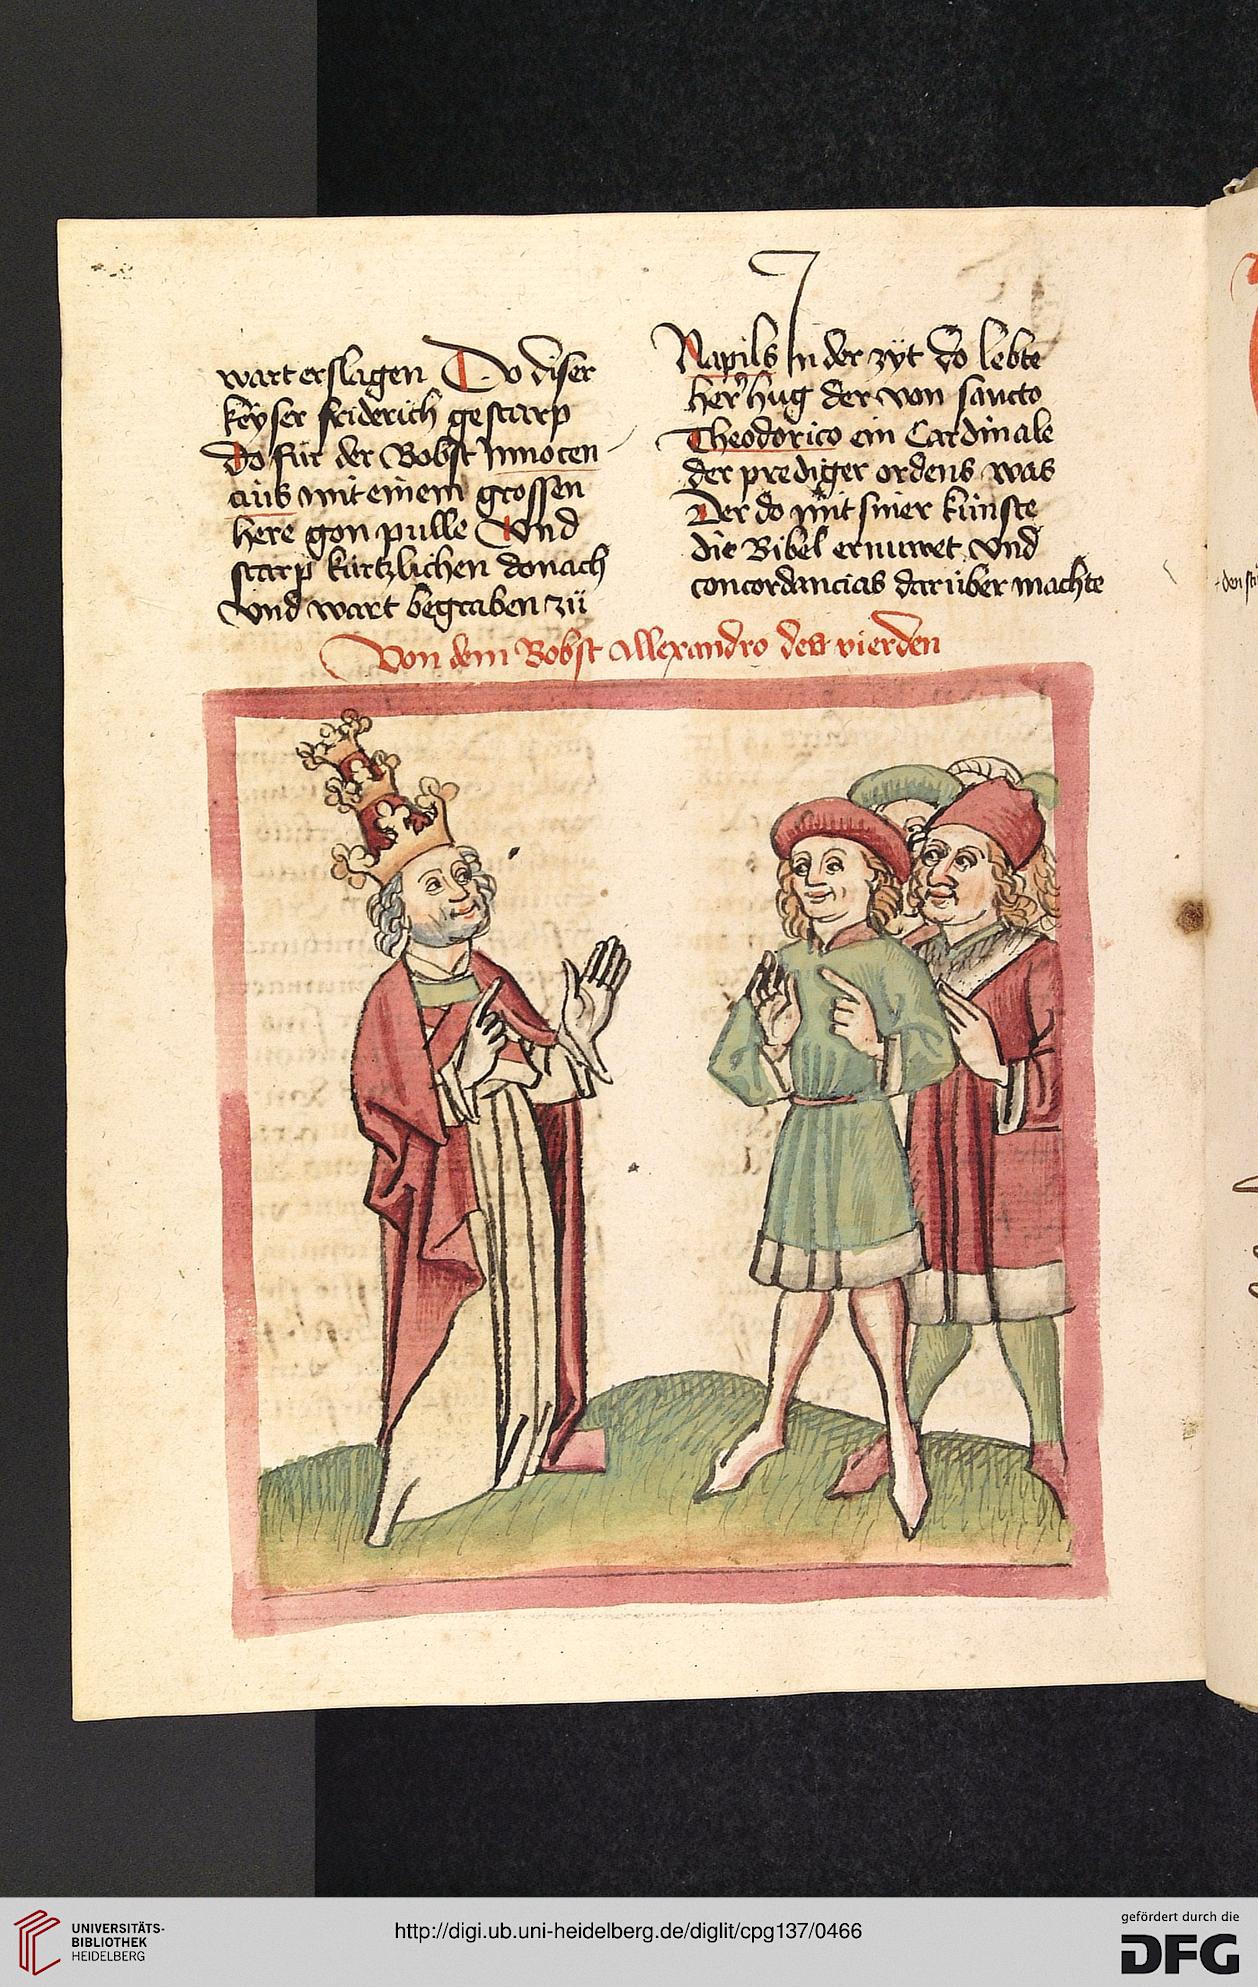 wart erslagen Do diser
keyser friderich gestarp
Do fur der Bobst Innocen
cius mit einem grossen
here gon pulle Und
starp kurtzlichen donach
Und wart begraben zü
Napils In der zyt do lebte
her hug der von sancto
Theodorico ein Cardinale
der prediger ordens was
Der do mit siner künste
die Bibel ernuwet vnd
concordancias darüber machte
Von dem Bobst Allexandro den vierden
UNIVERSITÄTS-
BIBLIOTHEK
HEIDELBERG
http://digi.ub.uni-heidelberg.de/diglit/cpg137/0466
gefördert durch die
DFG